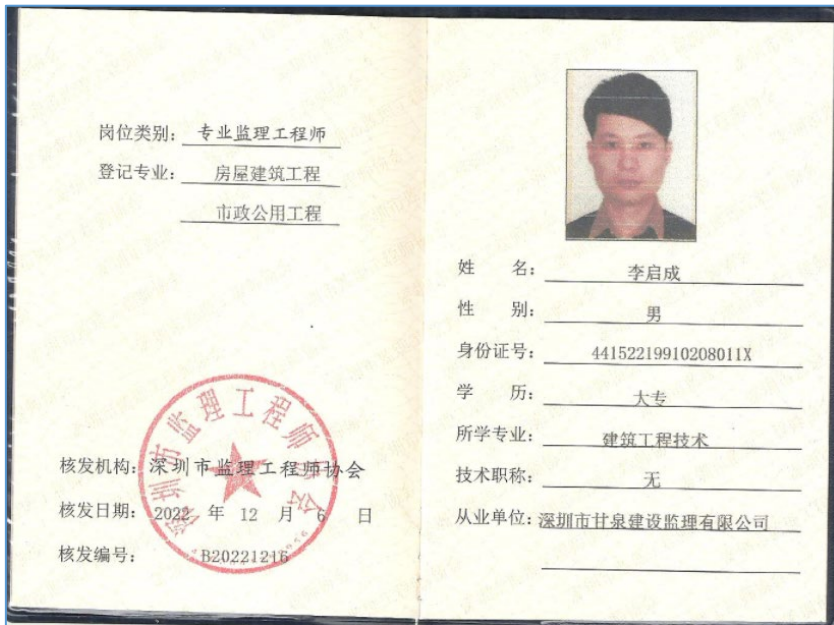 岗位类别：专业监理工程师
登记专业：房屋建筑工程
市政公用工程
深圳市监理工程师协会
核发机构：深圳市监理工程师协会
核发日期：2022 年 12 月 6 日
核发编号：B20221216
姓 名：李启成
性 别：男
身份证号：44152219910208011X
学 历：大专
所学专业：建筑工程技术
技术职称：无
从业单位：深圳市甘泉建设监理有限公司